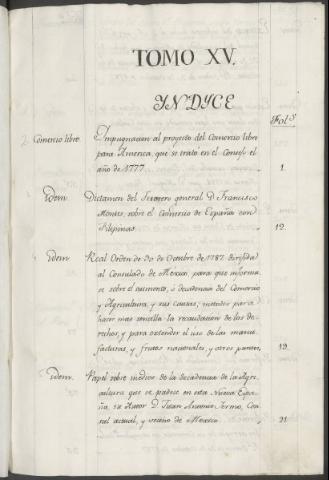 TOMO XV.
YNDYCE
Fol.s
Comercio libre. Ympugnacion al proyecto del Comercio libre
para America, que se trató en el Consejo el
año de 1777. 1.
Ydem Dictamen del Tesorero general D. Francisco
Montes, sobre el Comercio de España con
Filipinas 12.
Ydem Real Orden de 30 de Octubre de 1787 dirigida
al Consulado de Mexico, para que informa-
se sobre el aumento, ó decadencia del Comercio
y Agricultura, y sus causas, metodos para
hacer mas sencilla la recaudacion de los de-
rechos, y para extender el uso de las manu-
facturas, y frutos nacionales, y otros puntos. 19.
Ydem. Papel sobre medios de la decadencia de la Agri-
cultura que se padece en esta Nueva Espa-
ña, su Autor D. Juan Antonio Yermo, Con-
sul actual, y vecino de Mexico 21